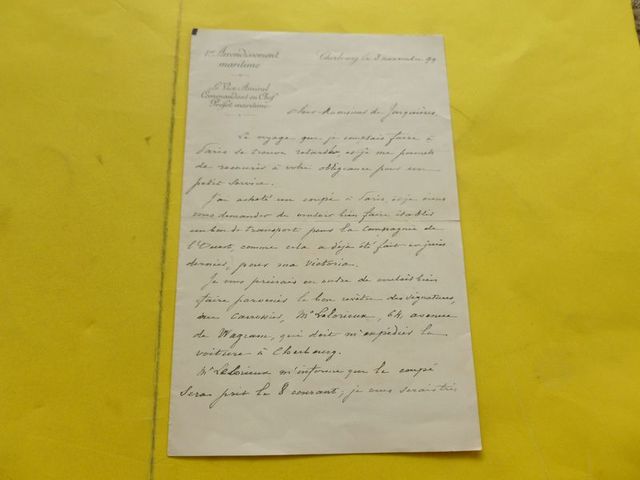 1er Arrondissement
maritime
Le Vice Amiral
Commandant en Chef
Préfet maritime
Cherbourg le 3 novembre 99
Cher Monsieur de Jarquières,
Le voyage que je comptais faire à
Paris se trouve retardé, et je me permets
de recourir à votre obligeance pour un
petit service.
J'ai acheté un coupé à Paris, et je veux
vous demander de vouloir bien faire établir
un bon de transport pour la Compagnie de
l'Ouest, comme cela a déjà été fait en juin
dernier, pour ma Victoria.
Je vous prierais en outre de vouloir bien
faire parvenir le bon revêtu des signatures,
au carrossier, Mr Lelorieux, 64, avenue
de Wagram, qui doit m'expédier la
voiture à Cherbourg.
Mr Lelorieux m'informe que le coupé
sera prêt le 8 courant; je vous serais très